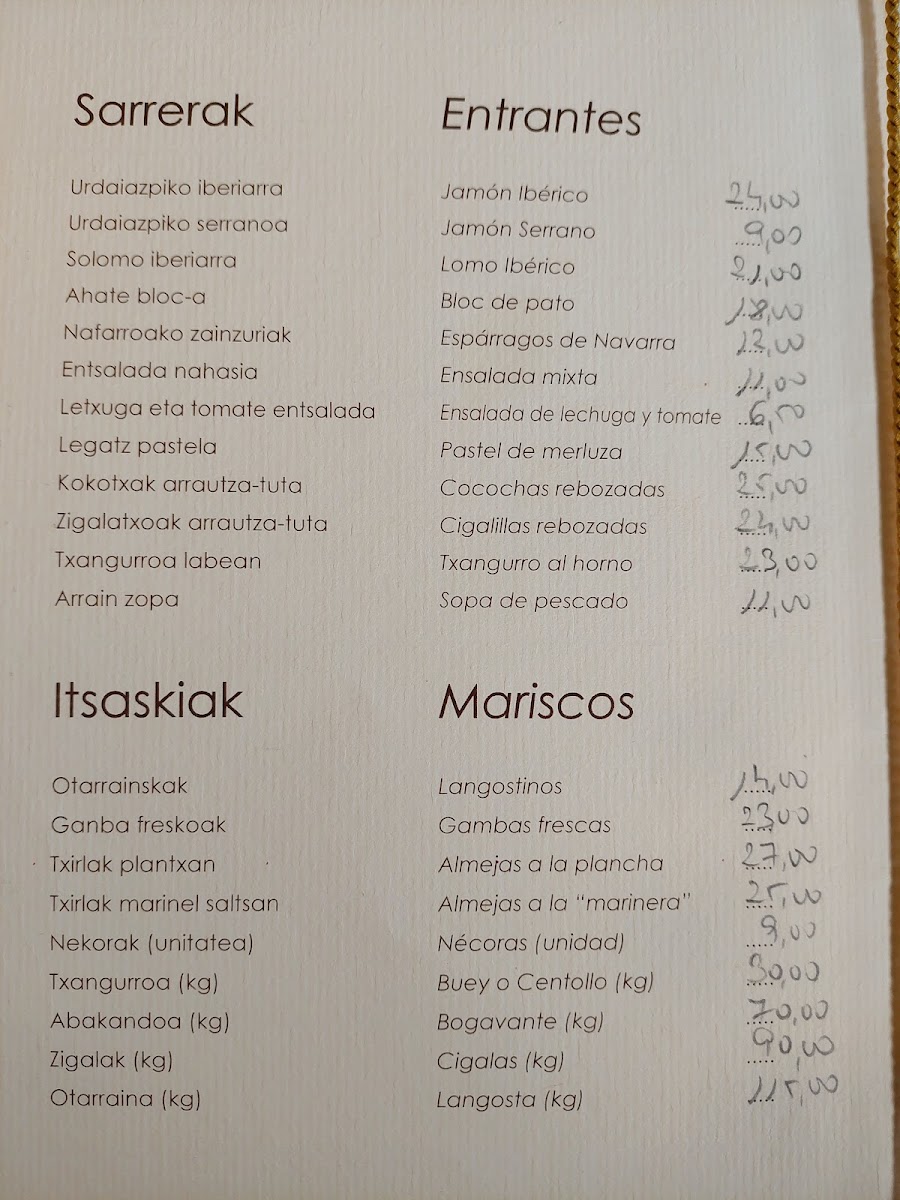 Sarrerak Entrantes
Urdaiazpiko iberiarra Jamón Ibérico 24,00
Urdaiazpiko serranoa Jamón Serrano 9,00
Solomo iberiarra Lomo Ibérico 21,00
Ahate bloc-a Bloc de pato 18,00
Nafarroako zainzuriak Espárragos de Navarra 13,00
Entsalada nahasia Ensalada mixta 11,00
Letxuga eta tomate entsalada Ensalada de lechuga y tomate 6,50
Legatz pastela Pastel de merluza 15,00
Kokotxak arrautza-tuta Cocochas rebozadas 25,00
Zigalatxoak arrautza-tuta Cigalillas rebozadas 24,00
Txangurroa labean Txangurro al horno 23,00
Arrain zopa Sopa de pescado 11,00
Itsaskiak Mariscos
Otarrainskak Langostinos 14,00
Ganba freskoak Gambas frescas 23,00
Txirlak plantxan Almejas a la plancha 27,00
Txirlak marinel saltsan Almejas a la “marinera” 25,00
Nekorak (unitatea) Nécoras (unidad) 9,00
Txangurroa (kg) Buey o Centollo (kg)
Abakandoa (kg) Bogavante (kg) 70,00
Zigalak (kg) Cigalas (kg) 90,00
Otarraina (kg) Langosta (kg) 115,00